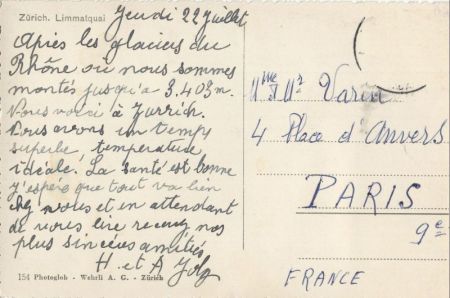 Zürich. Limmatquai
Jeudi 22 Juillet
Après les glaciers du
Rhône où nous sommes
montés jusqu'a 3.403 m.
Nous voici à Zurrich.
Nous avons un temps
superbe, température
idéale. La santé est bonne
J'espère que tout va bien
chez vous et en attendant
de vous lire recevez nos
plus sincères amitiés
H. et A
154 Photoglob - Wehrli A. G. - Zürich
Mme & Mr Varin
4 Place d'Anvers
PARIS
9e
FRANCE